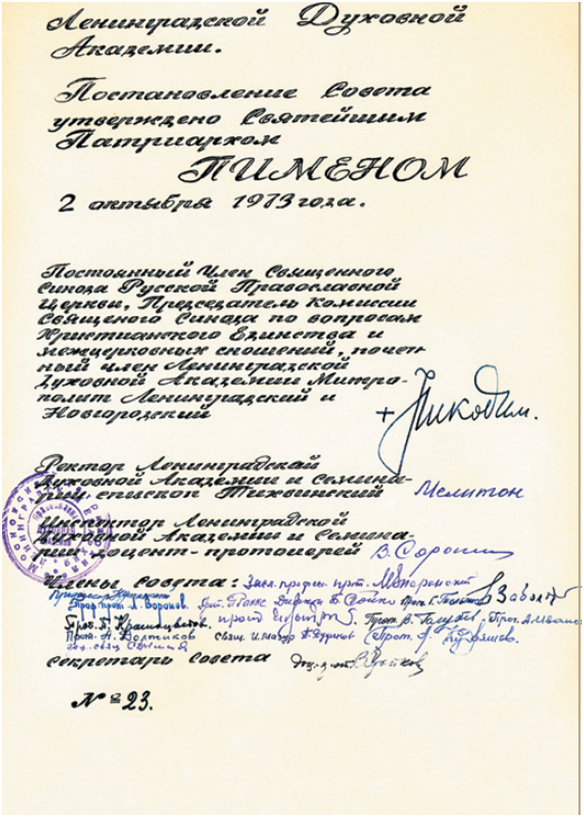 Ленинградской Духовной
Академии.
Постановление Совета
утверждено Святейшим
Патриархом
ПИМЕНОМ
2 октября 1973 года.
Постоянный Член Священного
Синода Русской Православной
Церкви, Председатель Комиссии
Священого Синода по вопросам
Христианского Единства и
межцерковных сношений, почет-
ный член Ленинградской
Духовной Академии Митро-
полит Ленинградский и
Новгородский
+ Никодим.
Ректор Ленинградской
Духовной Академии и Семина-
рии епископ Тихвинский Мелитон
Инспектор Ленинградской
Духовной Академии и Семина-
рии доцент-протоиерей В. Сорокин
Члены совета: Засл. профес. прот.
Проф. прот. Л. Воронов.
Прот.
Прот.
секретарь совета
№ 23.